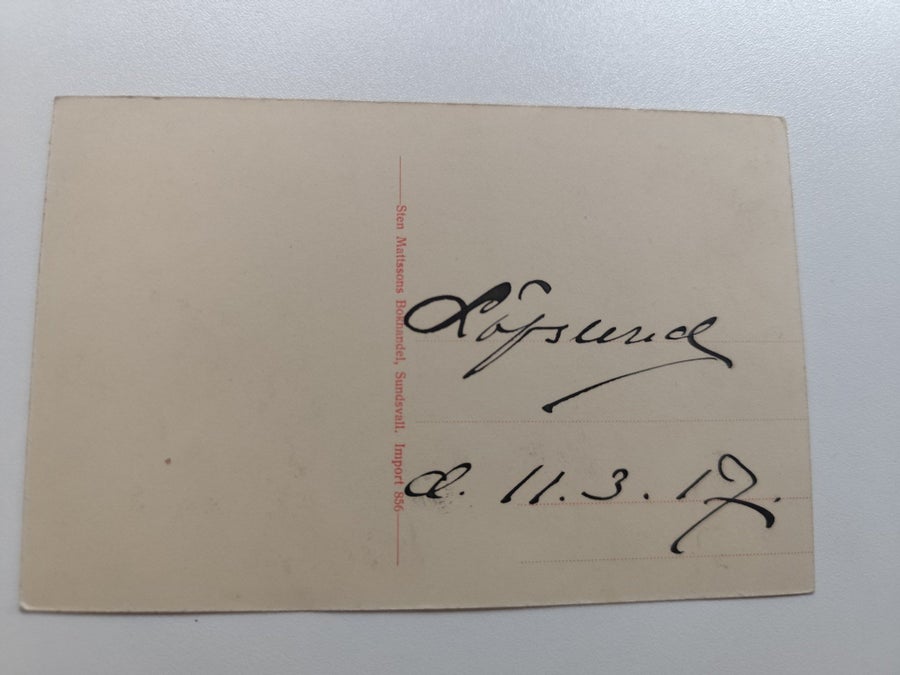 Sten Mattssons Bokhandel, Sundsvall. Import 856
Löfsund
d. 11.3.17.